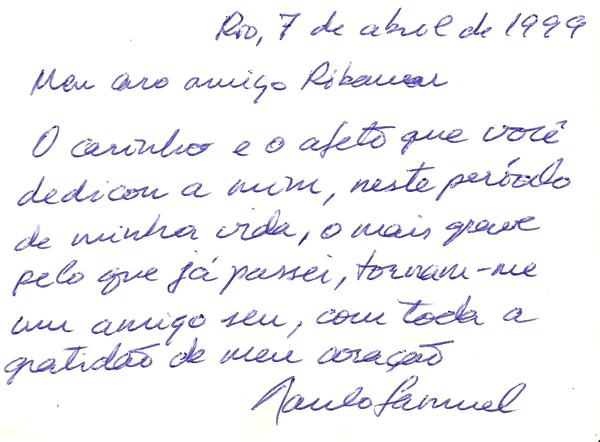 Rio, 7 de abril de 1999
Meu caro amigo Ribamar
O carinho e o afeto que você
dedicou a mim, neste período
de minha vida, o mais grave
pelo que já passei, tornam-me
um amigo seu, com toda a
gratidão de meu coração
Paulo Samuel